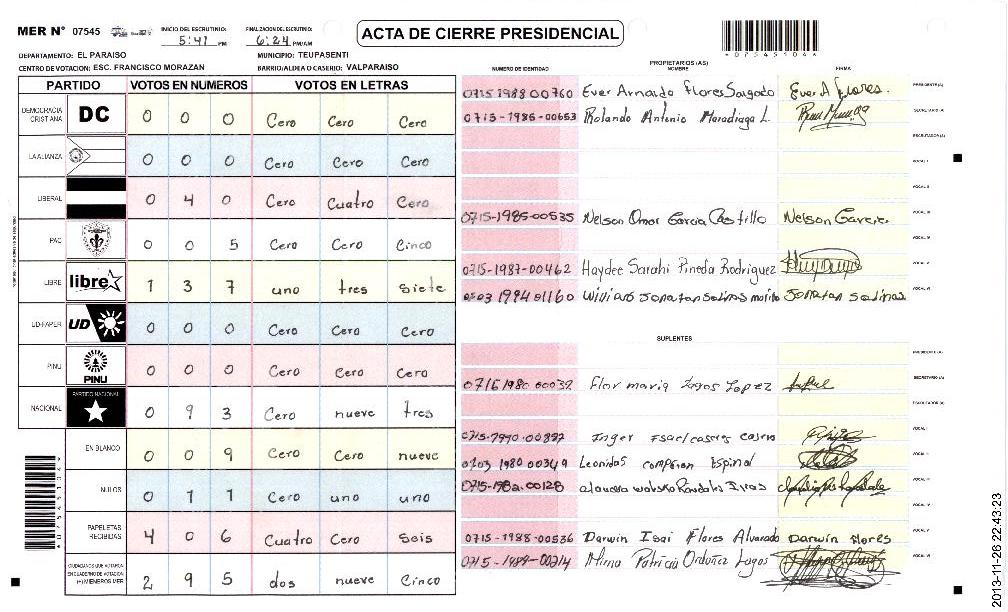 MER N° 07545 INICIO DEL ESCRUTINIO: 5:41 PM FINALIZACION DEL ESCRUTINIO: 6:24 PM/AM
ACTA DE CIERRE PRESIDENCIAL
* 0 7 5 4 5 1 0 4 *
DEPARTAMENTO: EL PARAISO MUNICIPIO: TEUPASENTI
CENTRO DE VOTACION: ESC. FRANCISCO MORAZAN BARRIO/ALDEA O CASERIO: VALPARAISO
PARTIDO VOTOS EN NUMEROS VOTOS EN LETRAS
DEMOCRACIA CRISTIANA DC 0 0 0 Cero Cero Cero
LA ALIANZA 0 0 0 Cero Cero Cero
LIBERAL 0 4 0 Cero Cuatro Cero
PAC 0 0 5 Cero Cero Cinco
LIBRE libre 1 3 7 uno tres siete
UD-FAPER UD 0 0 0 Cero Cero Cero
PINU PINU 0 0 0 Cero Cero Cero
NACIONAL PARTIDO NACIONAL 0 9 3 Cero nueve tres
EN BLANCO 0 0 9 Cero Cero nueve
NULOS 0 1 1 Cero uno uno
PAPELETAS RECIBIDAS 4 0 6 Cuatro Cero Seis
CIUDADANOS QUE VOTARON EN CUADERNO DE VOTACION (+) MIEMBROS MER 2 9 5 dos nueve Cinco
PROPIETARIOS (AS)
NUMERO DE IDENTIDAD NOMBRE FIRMA
0715 1988 00760 Ever Arnaldo Flores Salgado Ever A Flores. PRESIDENTE (A)
0715-1986-00653 Rolando Antonio Maradiaga L. SECRETARIO (A)
ESCRUTADOR (A)
VOCAL I
VOCAL II
0715-1985-00535 Nelson Omar Garcia Castillo Nelson Garcia VOCAL III
VOCAL IV
0715-1987-00462 Haydee Sarahi Pineda Rodriguez VOCAL V
1994 01160 Jonatan Salinas Jonatan Salinas VOCAL VI
SUPLENTES
PRESIDENTE (A)
1980 00032 Flor maria Lagos Lopez SECRETARIO (A)
ESCRUTADOR (A)
Inger VOCAL I
0703 1980 00349 Leonidas Espinal VOCAL II
0715-1982-00128 VOCAL III
VOCAL IV
0715-1988-00536 Darwin Isai Flores Alvarado Darwin flores VOCAL V
Alma Patricia Ordoñez Lagos VOCAL VI
2013-11-26 22:43:23